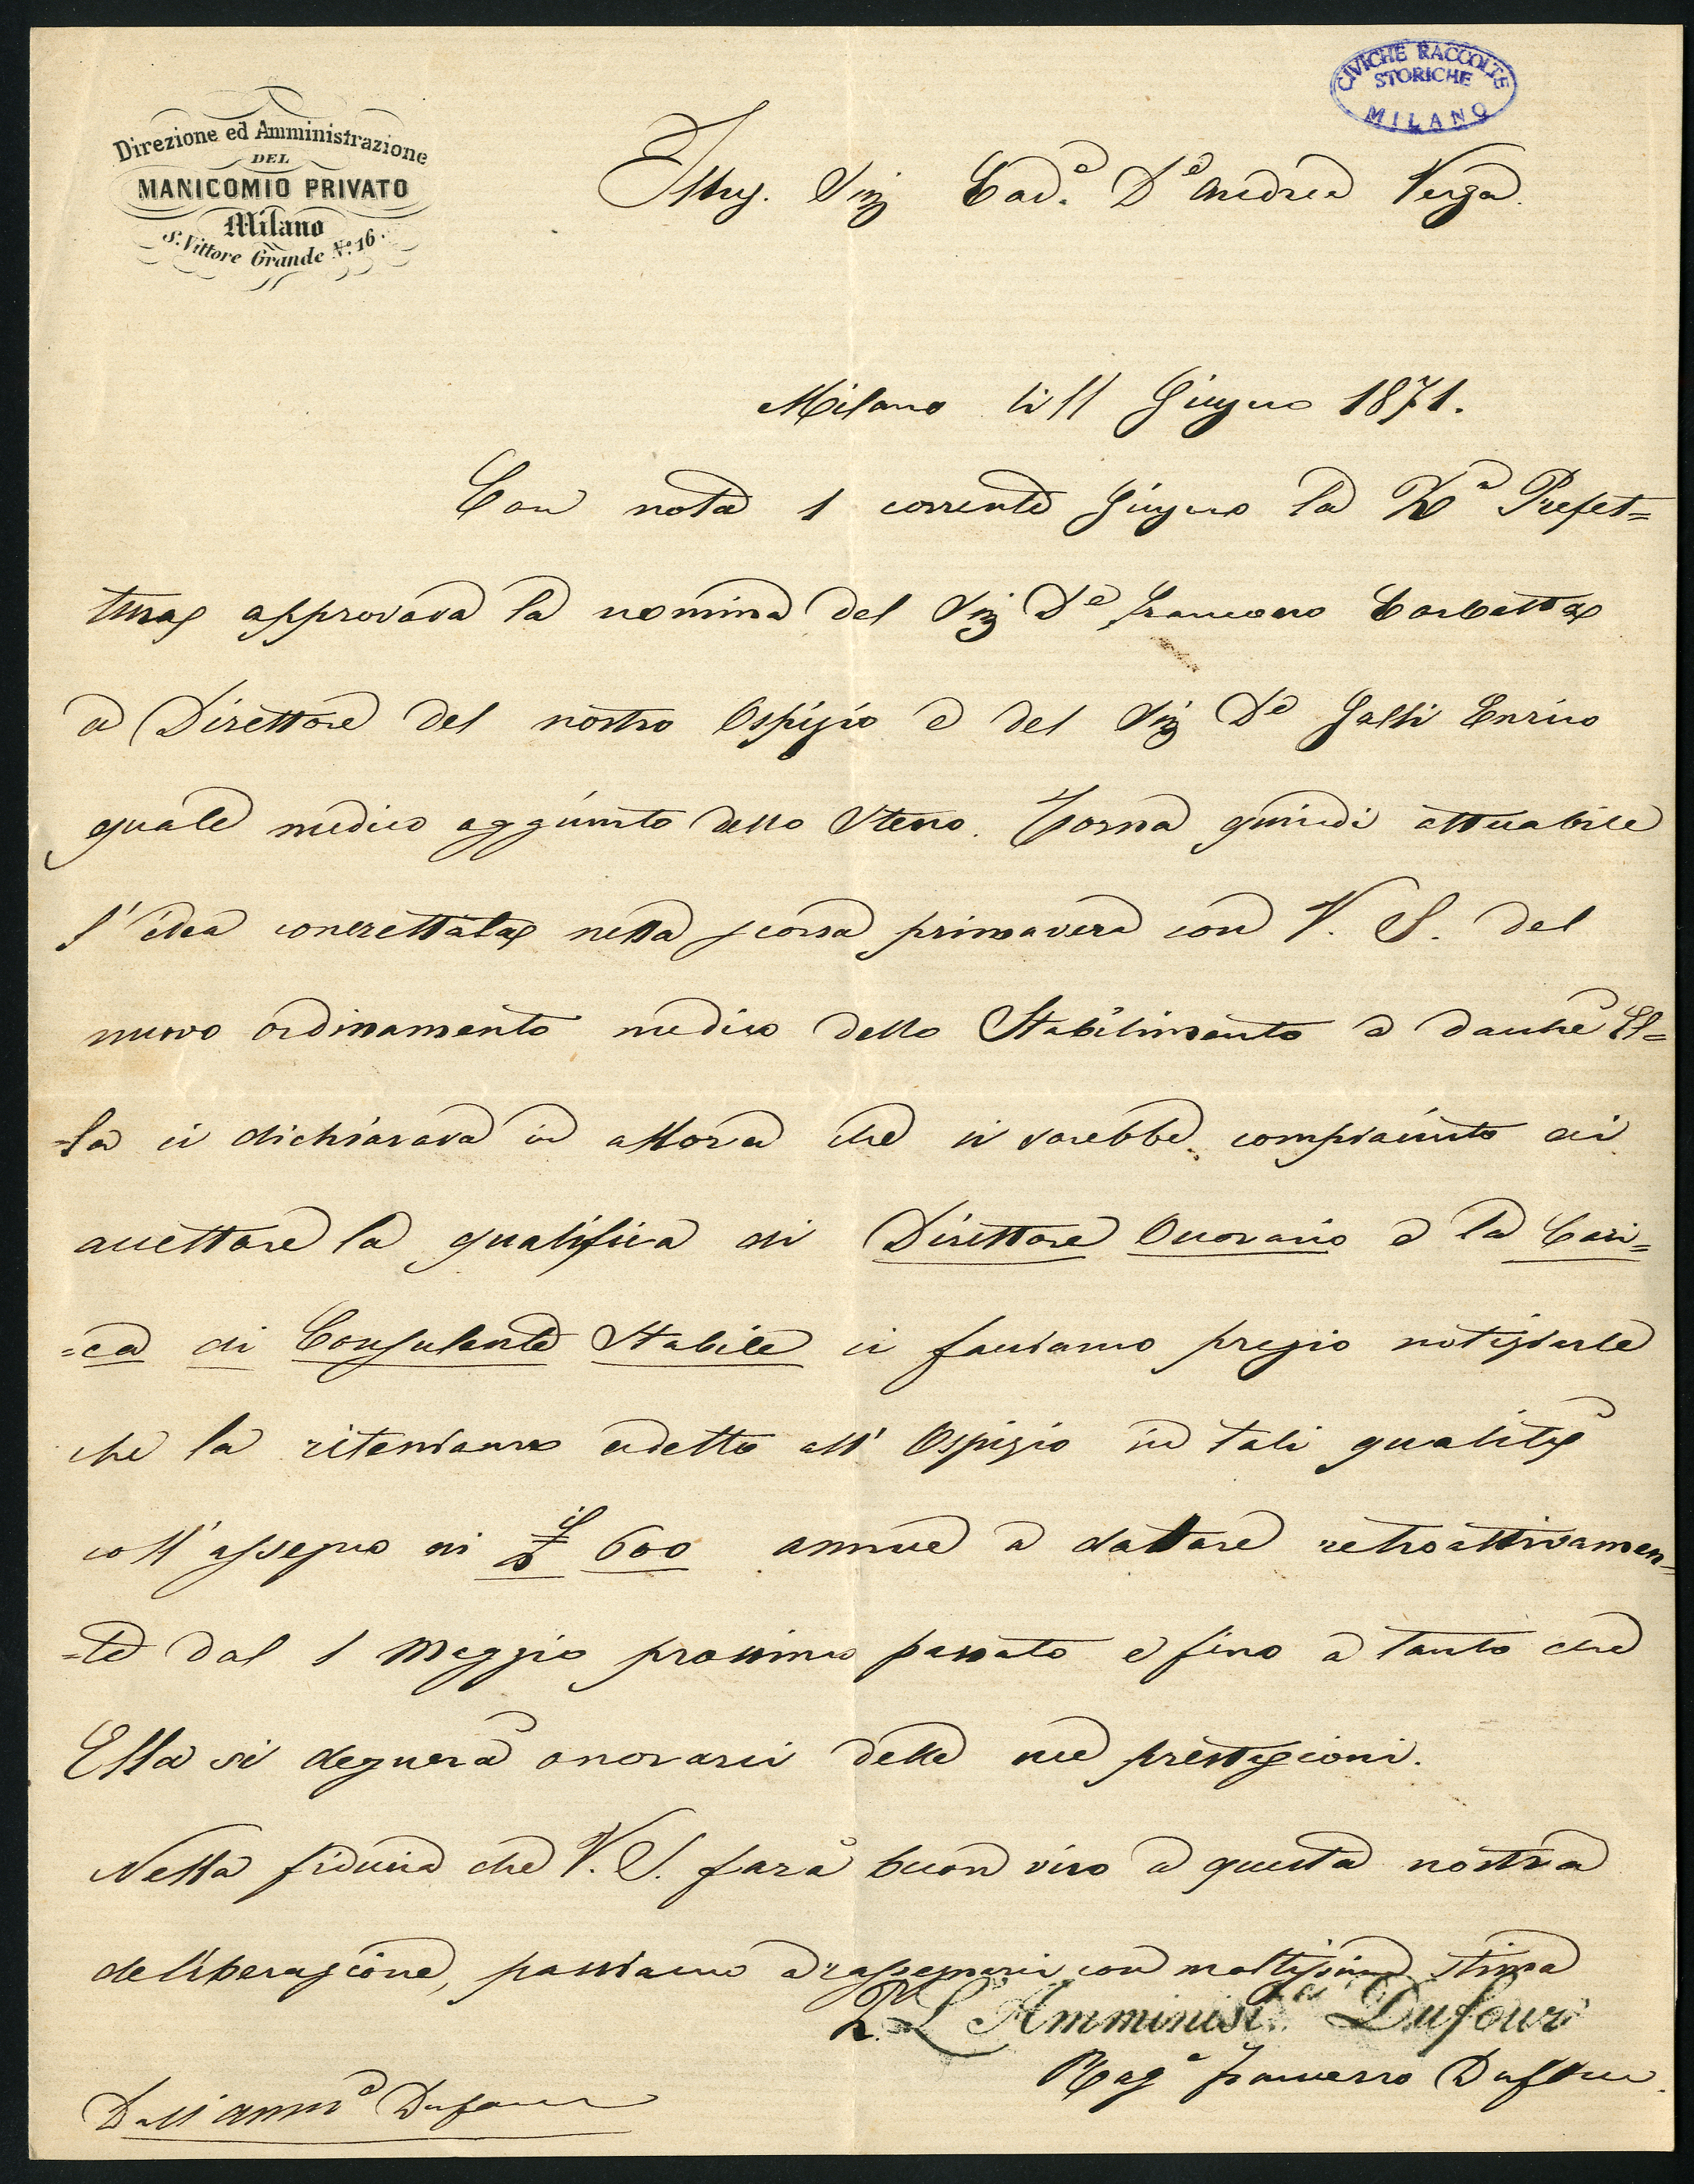 CIVICHE RACCOLTE
STORICHE
MILANO
Direzione ed Amministrazione
DEL
MANICOMIO PRIVATO
Milano
S. Vittore Grande N.o 16.
Illus. Sig Cav.e D.e Andrea Verga
Milano li 11 Giugno 1871.
Con nota 1 corrente Giugno la R.a Prefet=
tura approvava la nomina del Sig D.e Francesco Corbetta
a Direttore del nostro Ospizio e del Sig D.e Galli Enrico
quale medico aggiunto dello stesso. Torna quindi attuabile
l'idea concrettata nella scorsa primavera con V. S. del
nuovo ordinamento medico dello Stabilimento e dacchè El=
=la ci dichiarava in allora che si sarebbe compiaciuto di
accettare la qualifica di Direttore Onorario e la Cari=
=ca di Consulente Stabile ci facciamo pregio notiziarle
che la riteniamo adetto all' Ospizio in tali qualità
coll'assegno di 600 annue a datare retroattivamen=
=te dal 1 Maggio prossimo passato e fino a tanto che
Ella si degnerà onorarci delle sue prestazioni.
Nella fiducia che V. S. farà buon viso a questa nostra
deliberazione, passiamo a rassegnarci con moltissima stima
L'Amminist.ne Dufour
Rag.e Francesco Dufour
Dall'amm.e Dufour